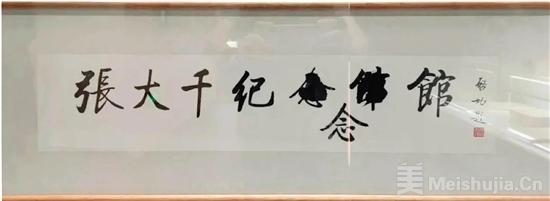 張大千纪念館
啓功題
美 Meishujia.Cn